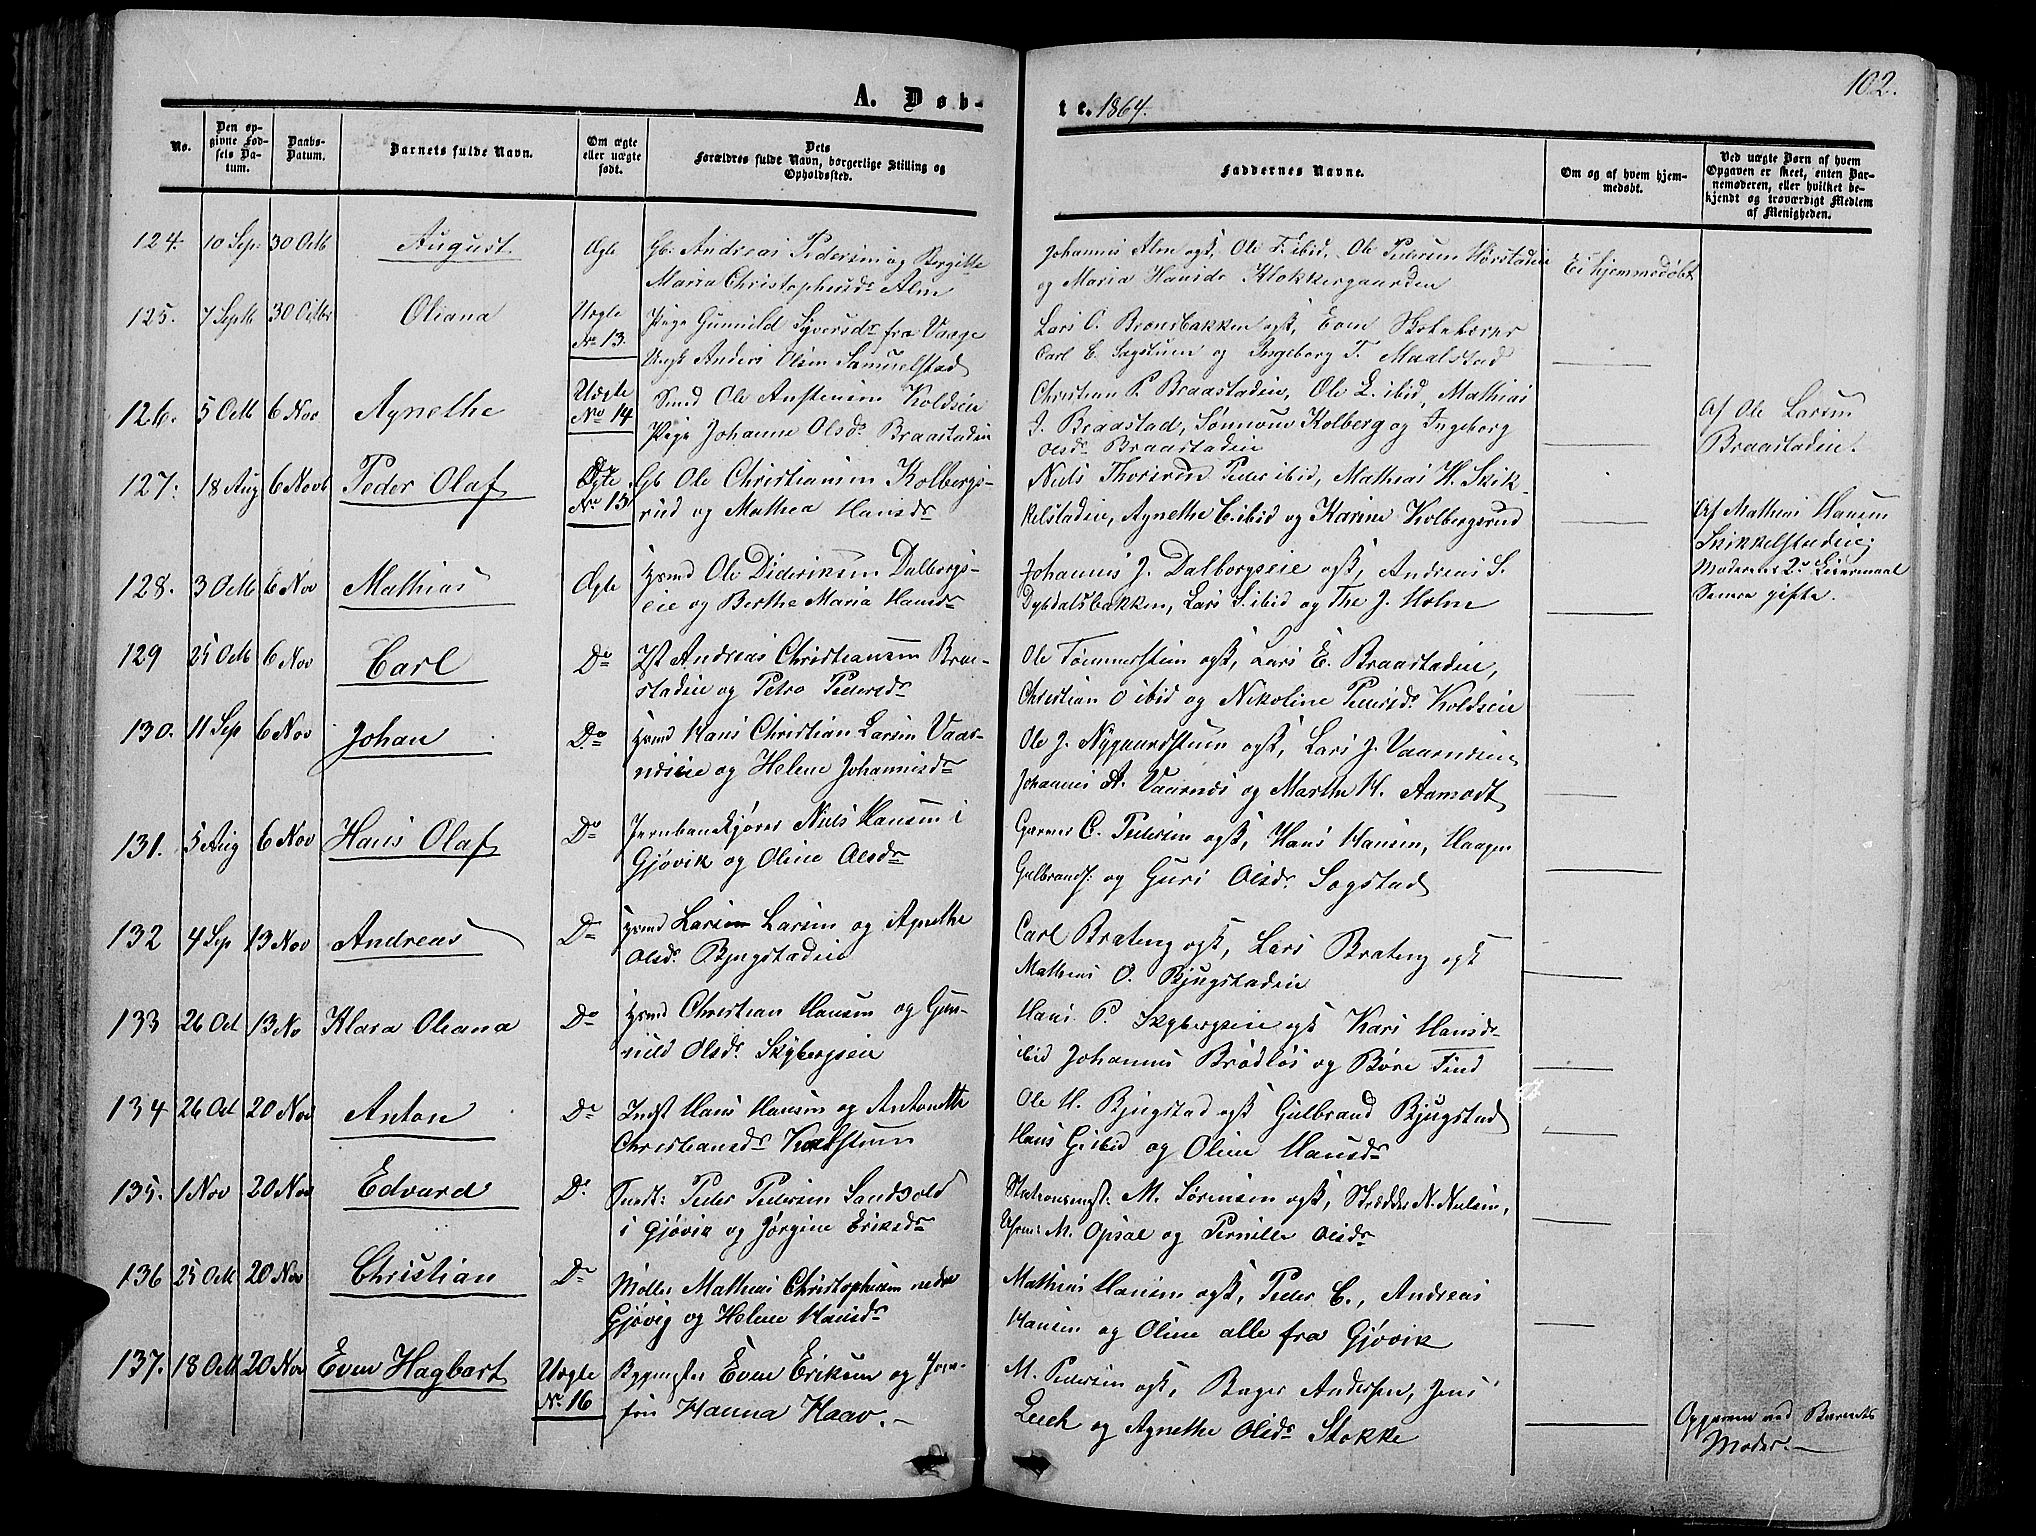 102.
A. Døb-
te. 1864.
No.
Den op-
givne Fød-
sels Da-
tum.
Daabs-
Datum.
Barnets fulde Navn.
Om ægte
eller uægte
født.
Dets
Forældres fulde Navn, borgerlige Stilling og
Opholdssted.
Faddernes Navne.
Om og af hvem hjem-
medøbt.
Ved uægte Børn af hvem
Opgaven er skeet, enten Bar-
nemoderen, eller hvilket be-
kjendt og troværdigt Medlem
af Menigheden.
124. 10 Sep. 30 Octb August Ægte Gb. Andreas Pedersen og Bergitte
Maria Christophersdr Alm
Johannes Alm ogk, Ole F. ibid, Ole Pedersen Hørstadeie
og Maria Hansdr Klokkergaarden
Ei hjemmedøbt
125. 7 Septb 30 Octbr Oliana Uægte
No 13.
Pige Gunnild Syversdr fra Vaage
Ungk Anders Olsen Samuelstad
Lars O. Bronsbakken ogk, Even Skolelærer
Carl E. Sagstuen og Ingeborg T. Maalstad
126. 5 Octb 6 Nov Agnethe Uægte
No 14
Smed Ole Anstensen Koldseie
Pige Johanne Olsdr Braastadeie
Christian P. Braastadeie, Ole L. ibid, Mathias
J. Braastad, Sønnove Kolberg og Ingeborg
Olsdr Braastadeie
Af Ole Larsen
Braastadeie.
127. 18 Aug 6 Novb Peder Olaf No 15
Gb Ole Christiansen Kolbergs-
rud og Mathea Hansdr
Niels Thoresen Peder ibid, Mathias H. Skik-
kelstadeie, Agnethe C. ibid og Karine Kolbergsrud
Af Mathias Hansen
Skikkelstadeie;
Moderens 2. Leiermaal
Senere gifte.
128. 3 Octb 6 Nov Mathias Ægte Hsmd Ole Dideriksen Dalborgs-
eie og Berthe Maria Hansdr
Johannes J. Dalborgseie ogk, Andreas S.
Dybdalsbakken, Lars S. ibid og The J. Holm
129 25 Octb 6 Nov Carl Do Ist Andreas Christiansen Braa-
stadeie og Petra Pedersdr
Ole Tømmerstuen ogk, Lars E. Braastadeie,
Christian O ibid og Nikoline Pedersdr Koldseie
130. 11 Sep 6 Nov Johan Do Hsmd Hans Christian Larsen Vaar-
næseie og Helene Johannesdr
Ole J. Nygaardstuen ogk, Lars J. Vaarnæseie
Johannes A. Vaarnæs og Marthe H. Aamodt
131. 5 Aug 6 Nov Hans Olaf Do Jernbankjører Niels Hansen i
Gjøvik og Oline Olsdr
Garver C. Pedersen ogk, Hans Hansen, Haagen
Gulbrands. og Guri Olsdr Sogstad
132 4 Sep 13 Nov Andreas Do Hsmd Lars Larsen og Agnethe
Olsdr Bjugstadeie
Carl Brateng ogk, Lars Brateng ogk
Mathias O. Bjugstadeie
133 26 Oct 13 No Klara Oliana Do Hsmd Christian Hansen og Gun-
nild Olsdr Skybergseie
Hans P. Skybergseie ogk Kari Hansdr
ibid Johannes Brødløs og Børe Tind
134 26 Oct 20 Nov Anton Do Indst Hans Hansen og Antonette
Christiansdr Kalstuen
Ole H. Bjugstad ogk Gulbrand Bjugstad
Hans G ibid og Oline Hansdr
135. 1 Nov 20 Nov Edvard Do Peder Pedersen Sandvold
i Gjøvik og Jørgine Eriksdr
Stationsmst. M. Sørensen ogk, Skrædder N. Nielsen,
M. Opsal og Pernille Olsdr
136 25 Octb 20 Nov Christian Do Møller Mathias Christophersen nedre
Gjøvig og Helene Hansdr
Mathias Hansen ogk, Peder C., Andreas
Hansen og Oline alle fra Gjøvik
137. 18 Octb 20 Nov Even Hagbart Uægte
No 16
Bygmester Even Eriksen og Jom-
fru Hanna Haav.
M. Pedersen ogk, Bager Andersen, Jens
Lech og Agnethe Olsdr Stokke
Opgaven ved Barnets
Moder.